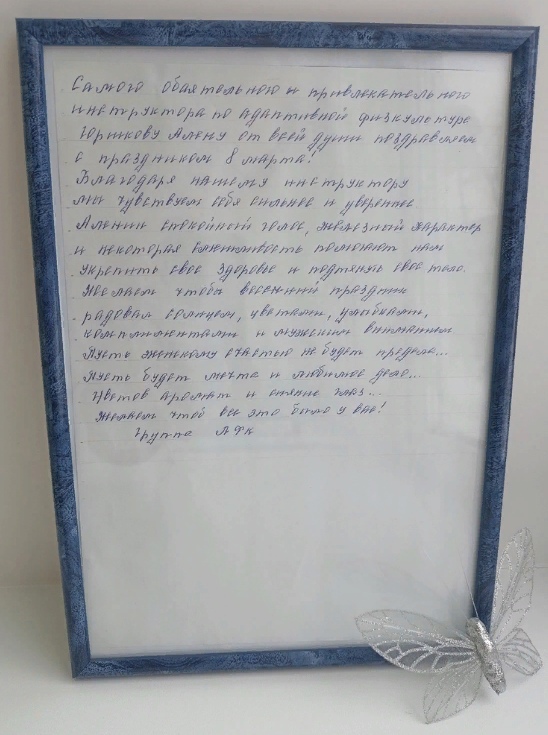 Самого обаятельного и привлекательного
инструктора по адаптивной физкультуре
Горшкову Алену от всей души поздравляем
с праздником 8 марта!
Благодаря нашему инструктору
мы чувствуем себя сильнее и увереннее
Аленин спокойный голос, железный характер
и некоторая выжливость помогают нам
укрепить свое здоровье и подтянуть свое тело.
Желаем чтобы весенний праздник
радовал солнцем, цветами, улыбками,
комплиментами и мужским вниманием
Пусть женскому счастью не будет предела...
Пусть будет мечта и любимое дело...
Цветов аромат и сияние глаз...
Желаем чтоб все это было у вас!
Группа АФК